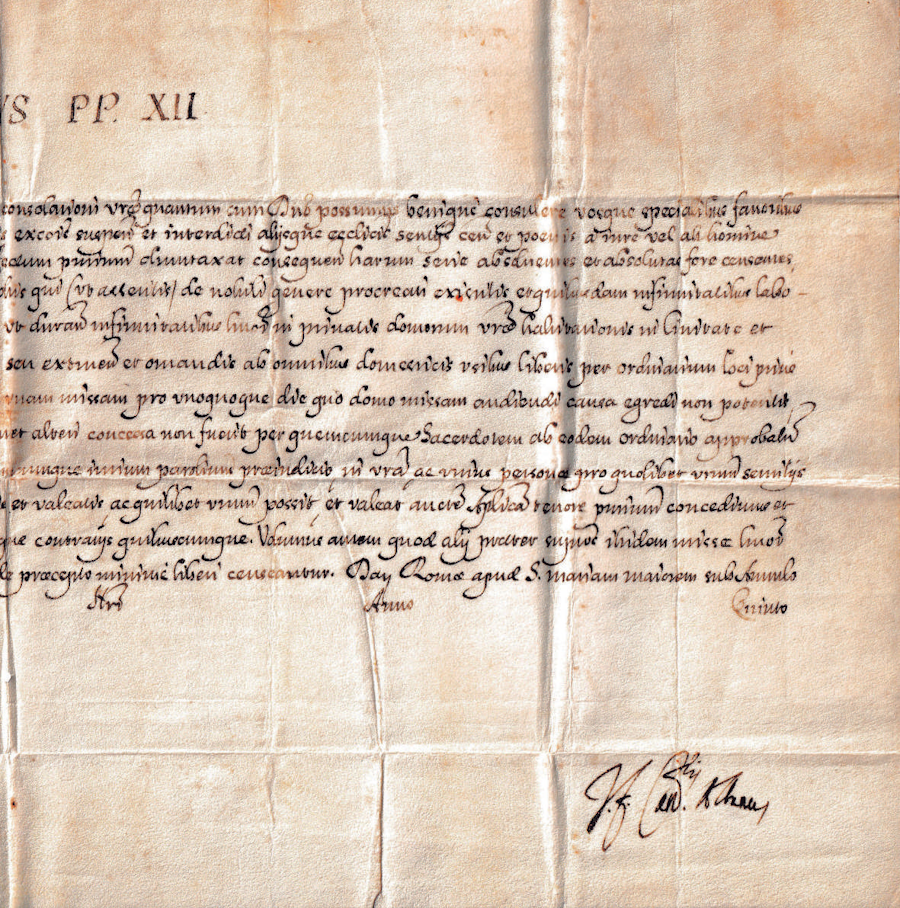 VS PP. XII
consolationi vr̃e quantum cum Dno possumus benigne consulere vosque specialibus favoribus
excoĩs suspeñ et interdicti alijsque ecclicis senteñ ceñ et poenis a iure vel ab homine
dumtaxat consequeñ harum serie absolventes et absolutas fore censentes
qui (ut asseritis) de nobili genere procreati existitis et quibusdam infirmitatibus labo-
ut durañ infirmitatibus hmõi in privatis domorum vr̃ę habitationis in Civitate et
seu extrueñ et ornandis ab omnibus domesticis usibus liberis per ordinarium loci prius
unam missam pro unoquoque die quo domo missam audiendi causa egredi non poteritis
alteri concessa non fuerit per quemcumque Sacerdotem ab eodem ordinario approbatũ
iurium parochium præiudicio in vrã ac
et valeatis ac quilibet vrum possit et valeat aucte Aplica tenore pñtium concedimus et
contrarijs quibuscumque. Volumus autem quod alij præter ibidem missæ hmõi
præcepto minime liberi censeantur. Dat̃ Romæ apud S. mariam maiorem sub Annulo
Nri Anno Quinto
J. f. Card. Albanus